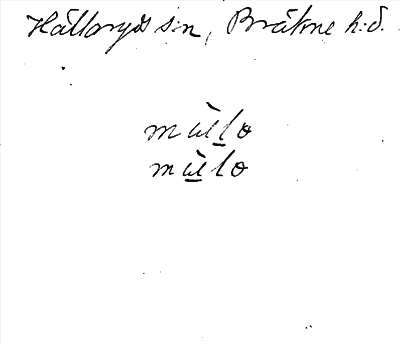 Hällaryds sn, Bräkne h:d.
mùlo
mùlo